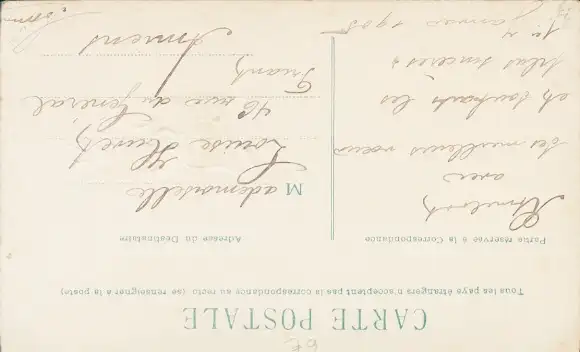 CARTE POSTALE
Tous les pays étrangers n'acceptent pas la correspondance au recto (se renseigner à la poste)
Partie réservée à la Correspondance
avec
ses meilleurs vœux
et souhaits les
plus sincères
1er janvier 1905
Adresse du Destinataire
Mademoiselle
Louise
46 rue du Général
Friant
Amiens